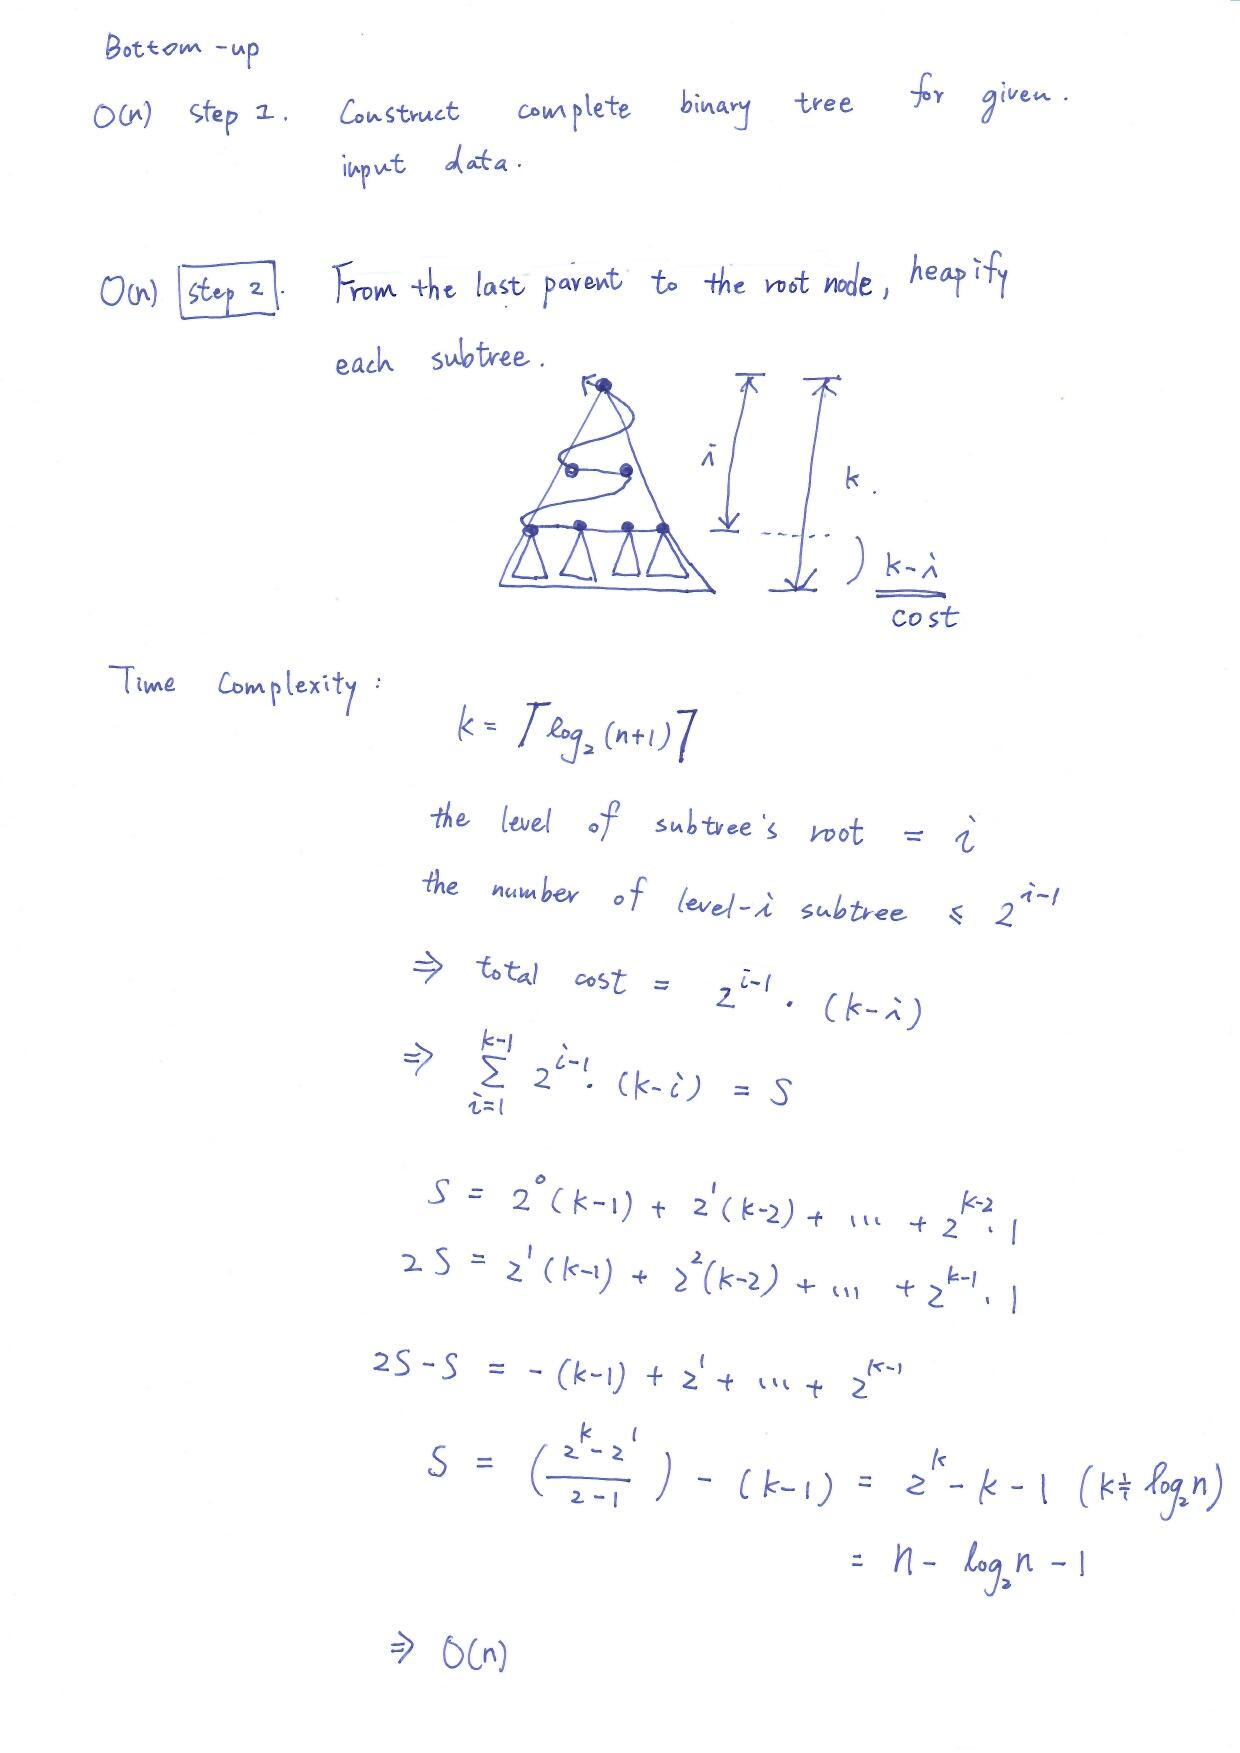 Bottom-up
O(n) step 1. Construct complete binary tree for given.
input data.
O(n) step 2. From the last parent to the root node, heapify
each subtree.
i
k.
k-i
cost
Time Complexity:
k = ⌈log₂(n+1)⌉
the level of subtree's root = i
the number of level-i subtree ≤ 2^{i-1}
⇒ total cost = 2^{i-1} · (k-i)
⇒ \sum_{i=1}^{k-1} 2^{i-1} · (k-i) = S
S = 2^0(k-1) + 2^1(k-2) + ... + 2^{k-2} · 1
2S = 2^1(k-1) + 2^2(k-2) + ... + 2^{k-1} · 1
2S-S = -(k-1) + 2^1 + ... + 2^{k-1}
S = (\frac{2^k-2^1}{2-1}) - (k-1) = 2^k - k - 1 (k≒log₂n)
= n - log₂n - 1
⇒ O(n)